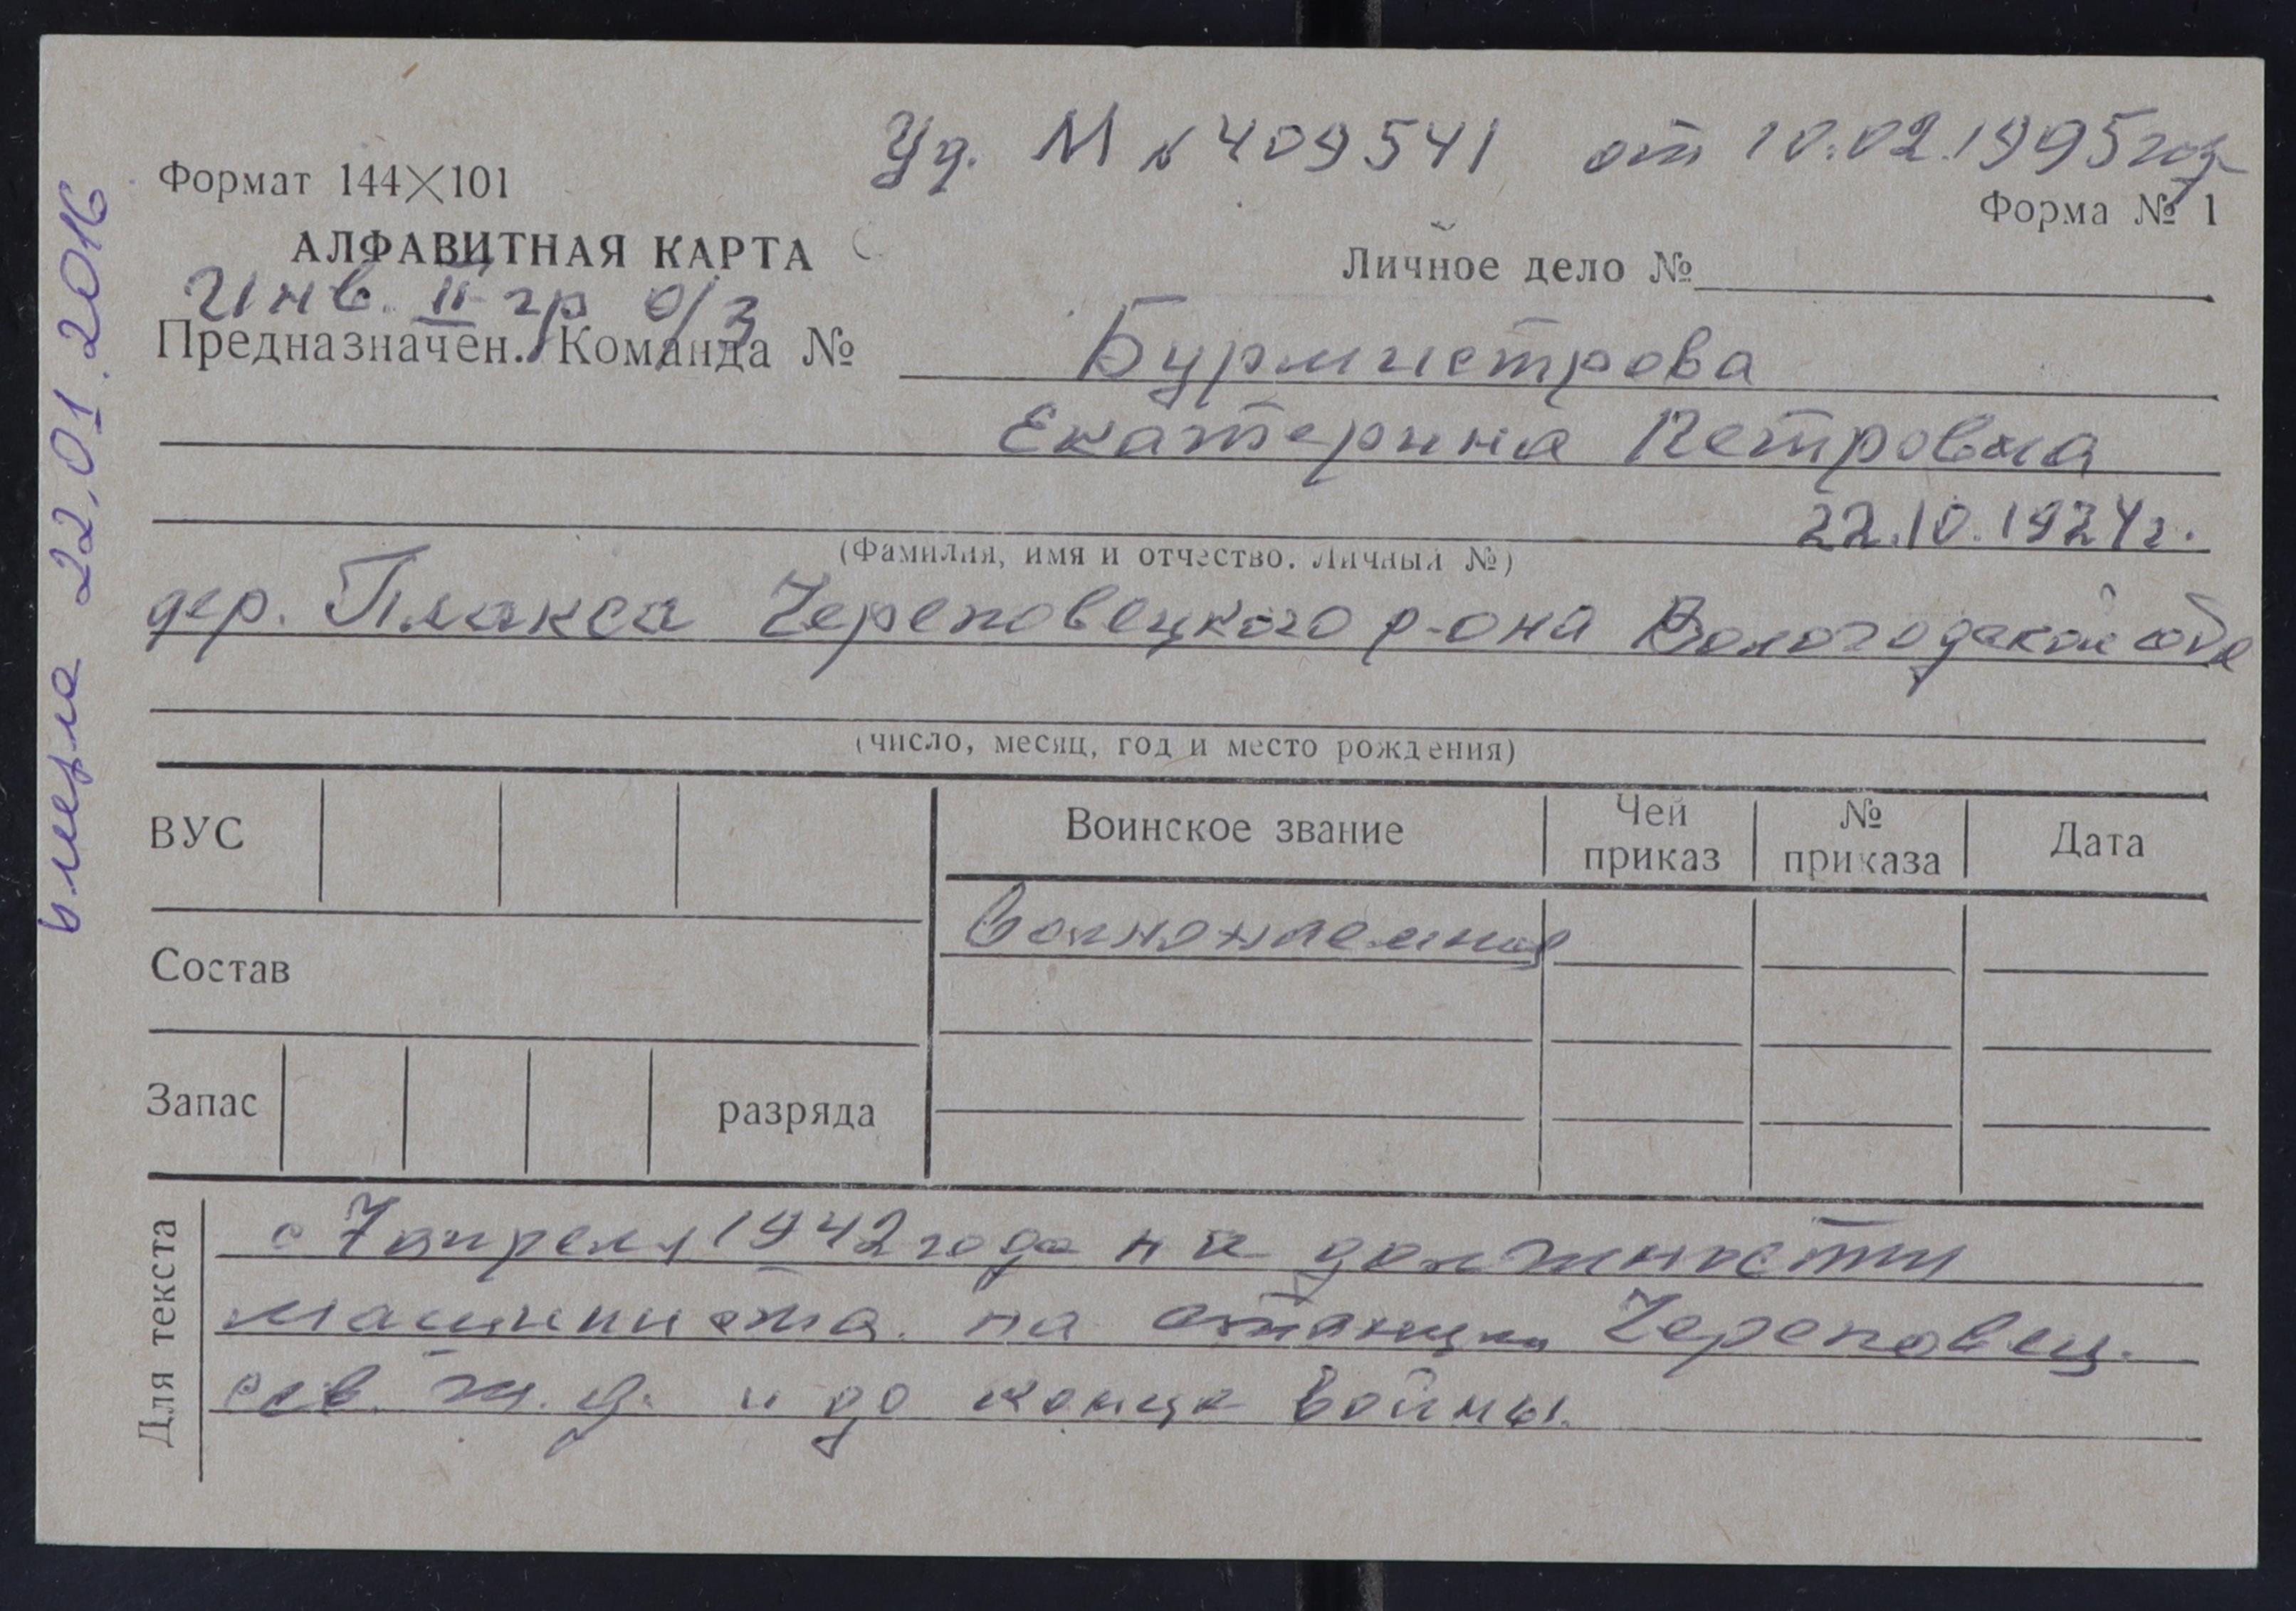 Уд. М № 409541 от 10.02.1995 год
Формат 144×101
Форма № 1
АЛФАВИТНАЯ КАРТА
Личное дело №
Инв. II гр о/з
Предназначен. Команда №
Бурмистрова
Екатерина Петровна
22.10.1924г.
(Фамилия, имя и отчество. Личный №)
дер. Плакса Череповецкого р-она Вологодской обл
(число, месяц, год и место рождения)
ВУС
Воинское звание
Чей приказ
№ приказа
Дата
Состав
Запас
разряда
Для текста
с 7 апреля 1942 года на должности
машиниста на станции Череповец.
сев. ж.д. и до конца войны.
умерла 22.01.2016